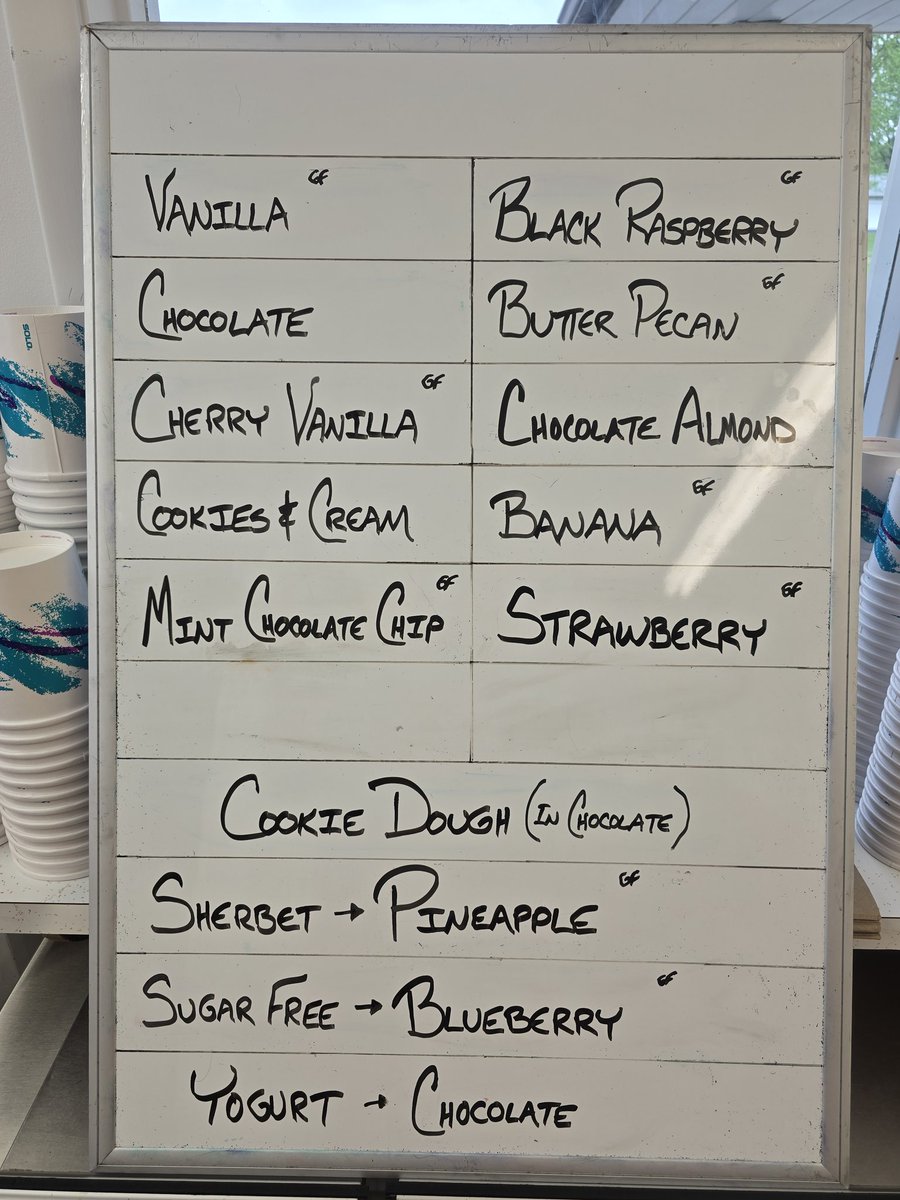 VANILLA GF
BLACK RASPBERRY GF
CHOCOLATE
BUTTER PECAN GF
CHERRY VANILLA GF
CHOCOLATE ALMOND
COOKIES & CREAM
BANANA GF
MINT CHOCOLATE CHIP GF
STRAWBERRY GF
COOKIE DOUGH (IN CHOCOLATE)
SHERBET → PINEAPPLE GF
SUGAR FREE → BLUEBERRY GF
YOGURT → CHOCOLATE
SOLO